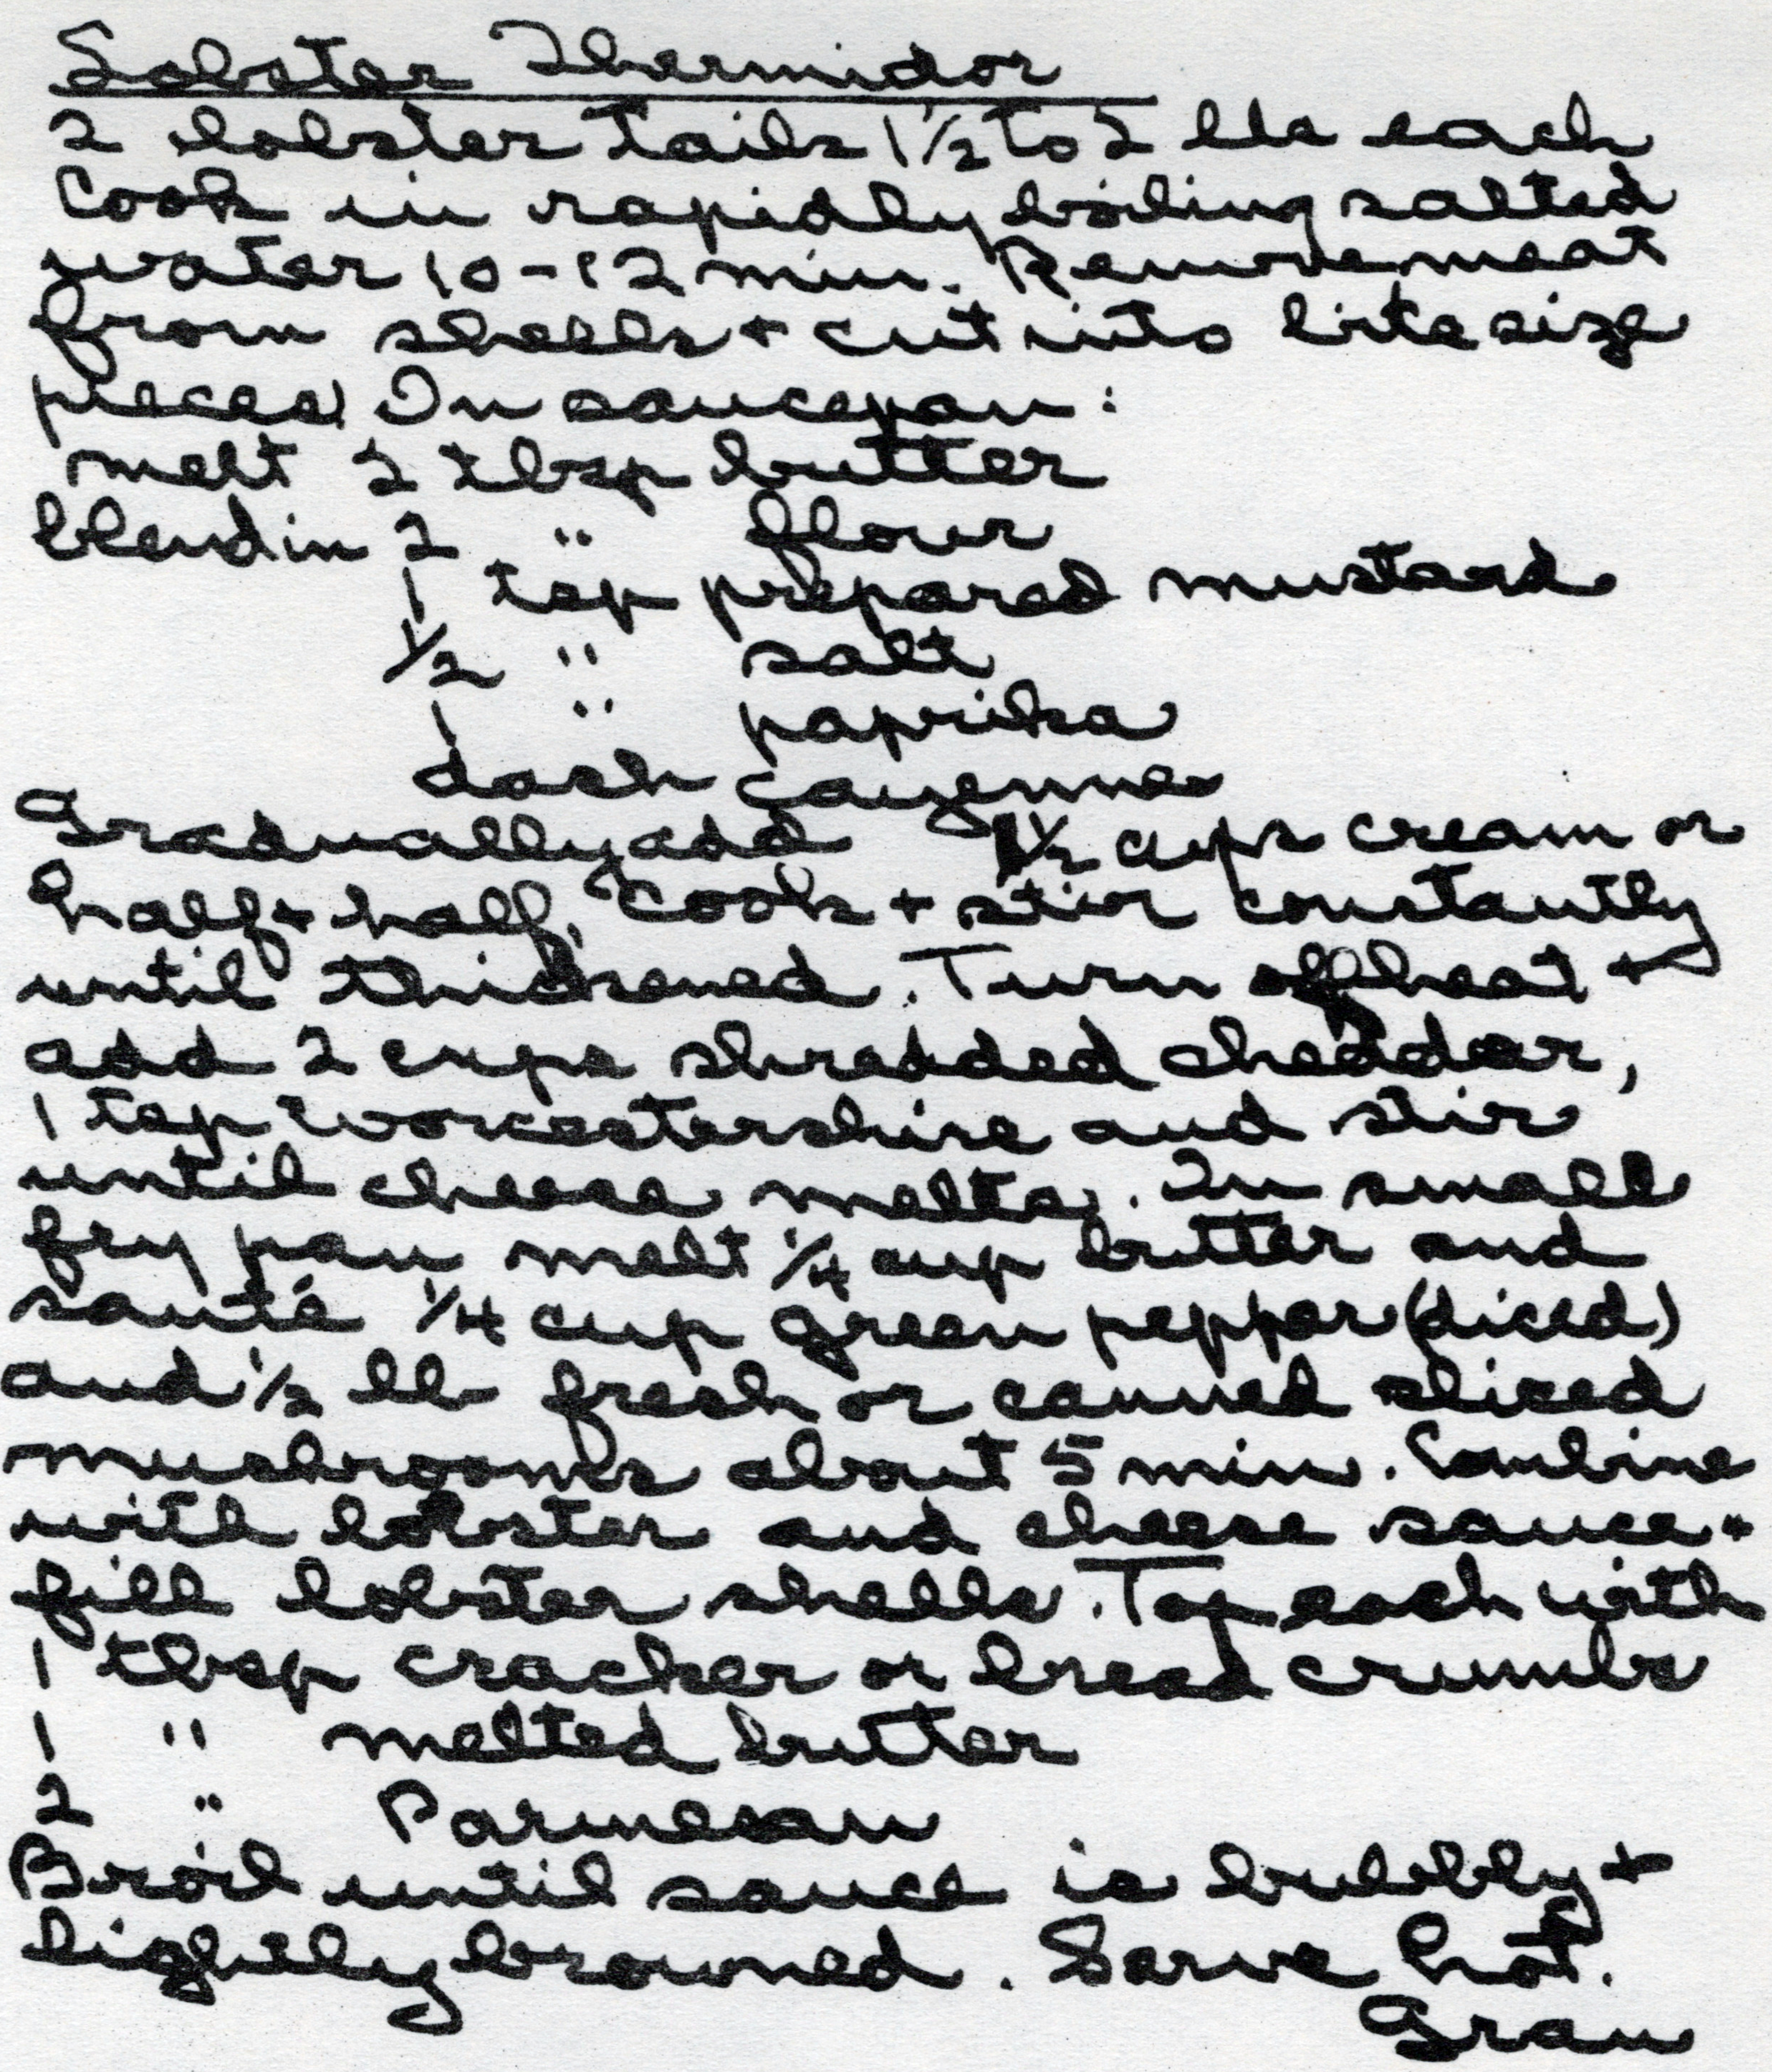 Lobster Thermidor
2 lobster tails 1 1/2 to 2 lbs each
Cook in rapidly boiling salted
water 10-12 min. Remove meat
from shells + cut into bite size
pieces. In saucepan:
melt 2 tbsp butter
blend in 2 " flour
1 tsp prepared mustard
1/2 " salt
1 " paprika
dash cayenne
Gradually add 1 1/2 cups cream or
half + half. Cook + stir constantly
until thickened. Turn off heat +
add 2 cups shredded cheddar,
1 tsp Worcestershire and stir
until cheese melts. In small
fry pan melt 1/4 cup butter and
sauté 1/4 cup green pepper (diced)
and 1/2 lb fresh or canned sliced
mushrooms about 5 min. Combine
with lobster and cheese sauce +
fill lobster shells. Top each with
1 tbsp cracker or bread crumbs
1 " melted butter
2 " Parmesan
Broil until sauce is bubbly +
lightly browned. Serve hot.
Gran